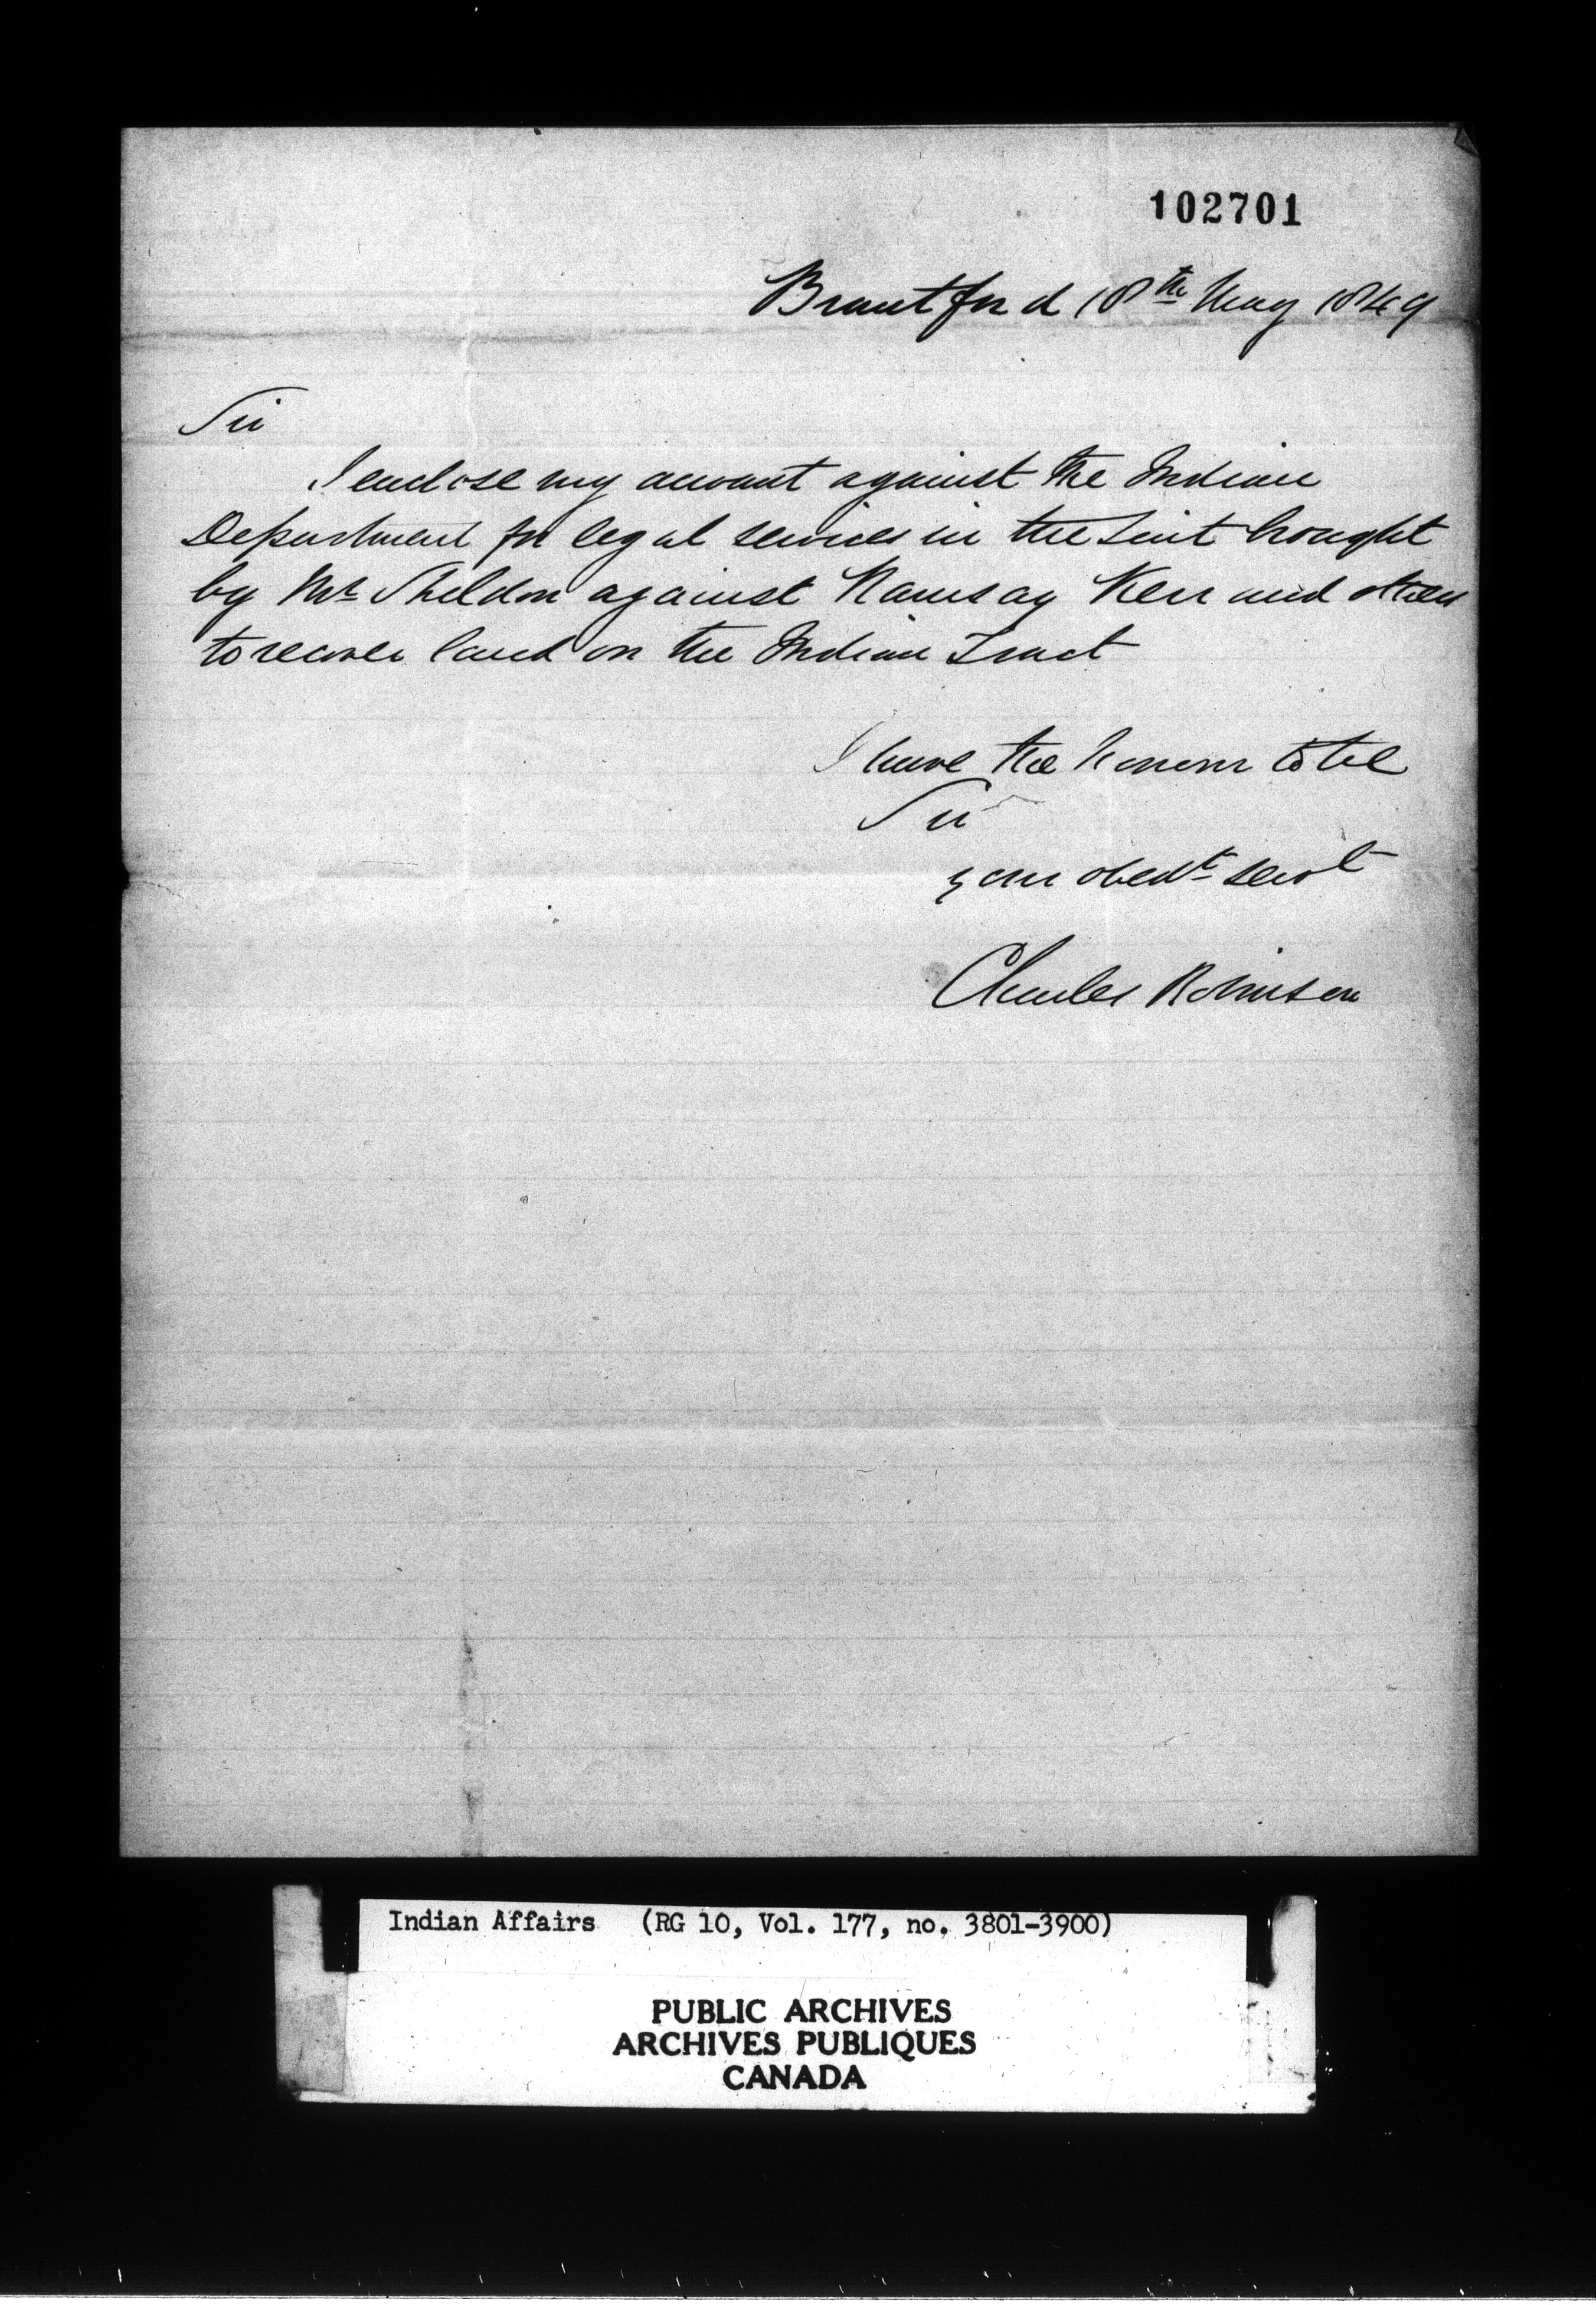 102701
Brantford 18th May 1849
Sir
I enclose my account against the Indian
Department for legal services in the suit brought
by Mr Sheldon against Ramsay Kerr and others
to recover land on the Indian Tract
I have the honour to be
Sir
your obedt servt
Charles Robinson
Indian Affairs (RG 10, Vol. 177, no. 3801-3900)
PUBLIC ARCHIVES
ARCHIVES PUBLIQUES
CANADA